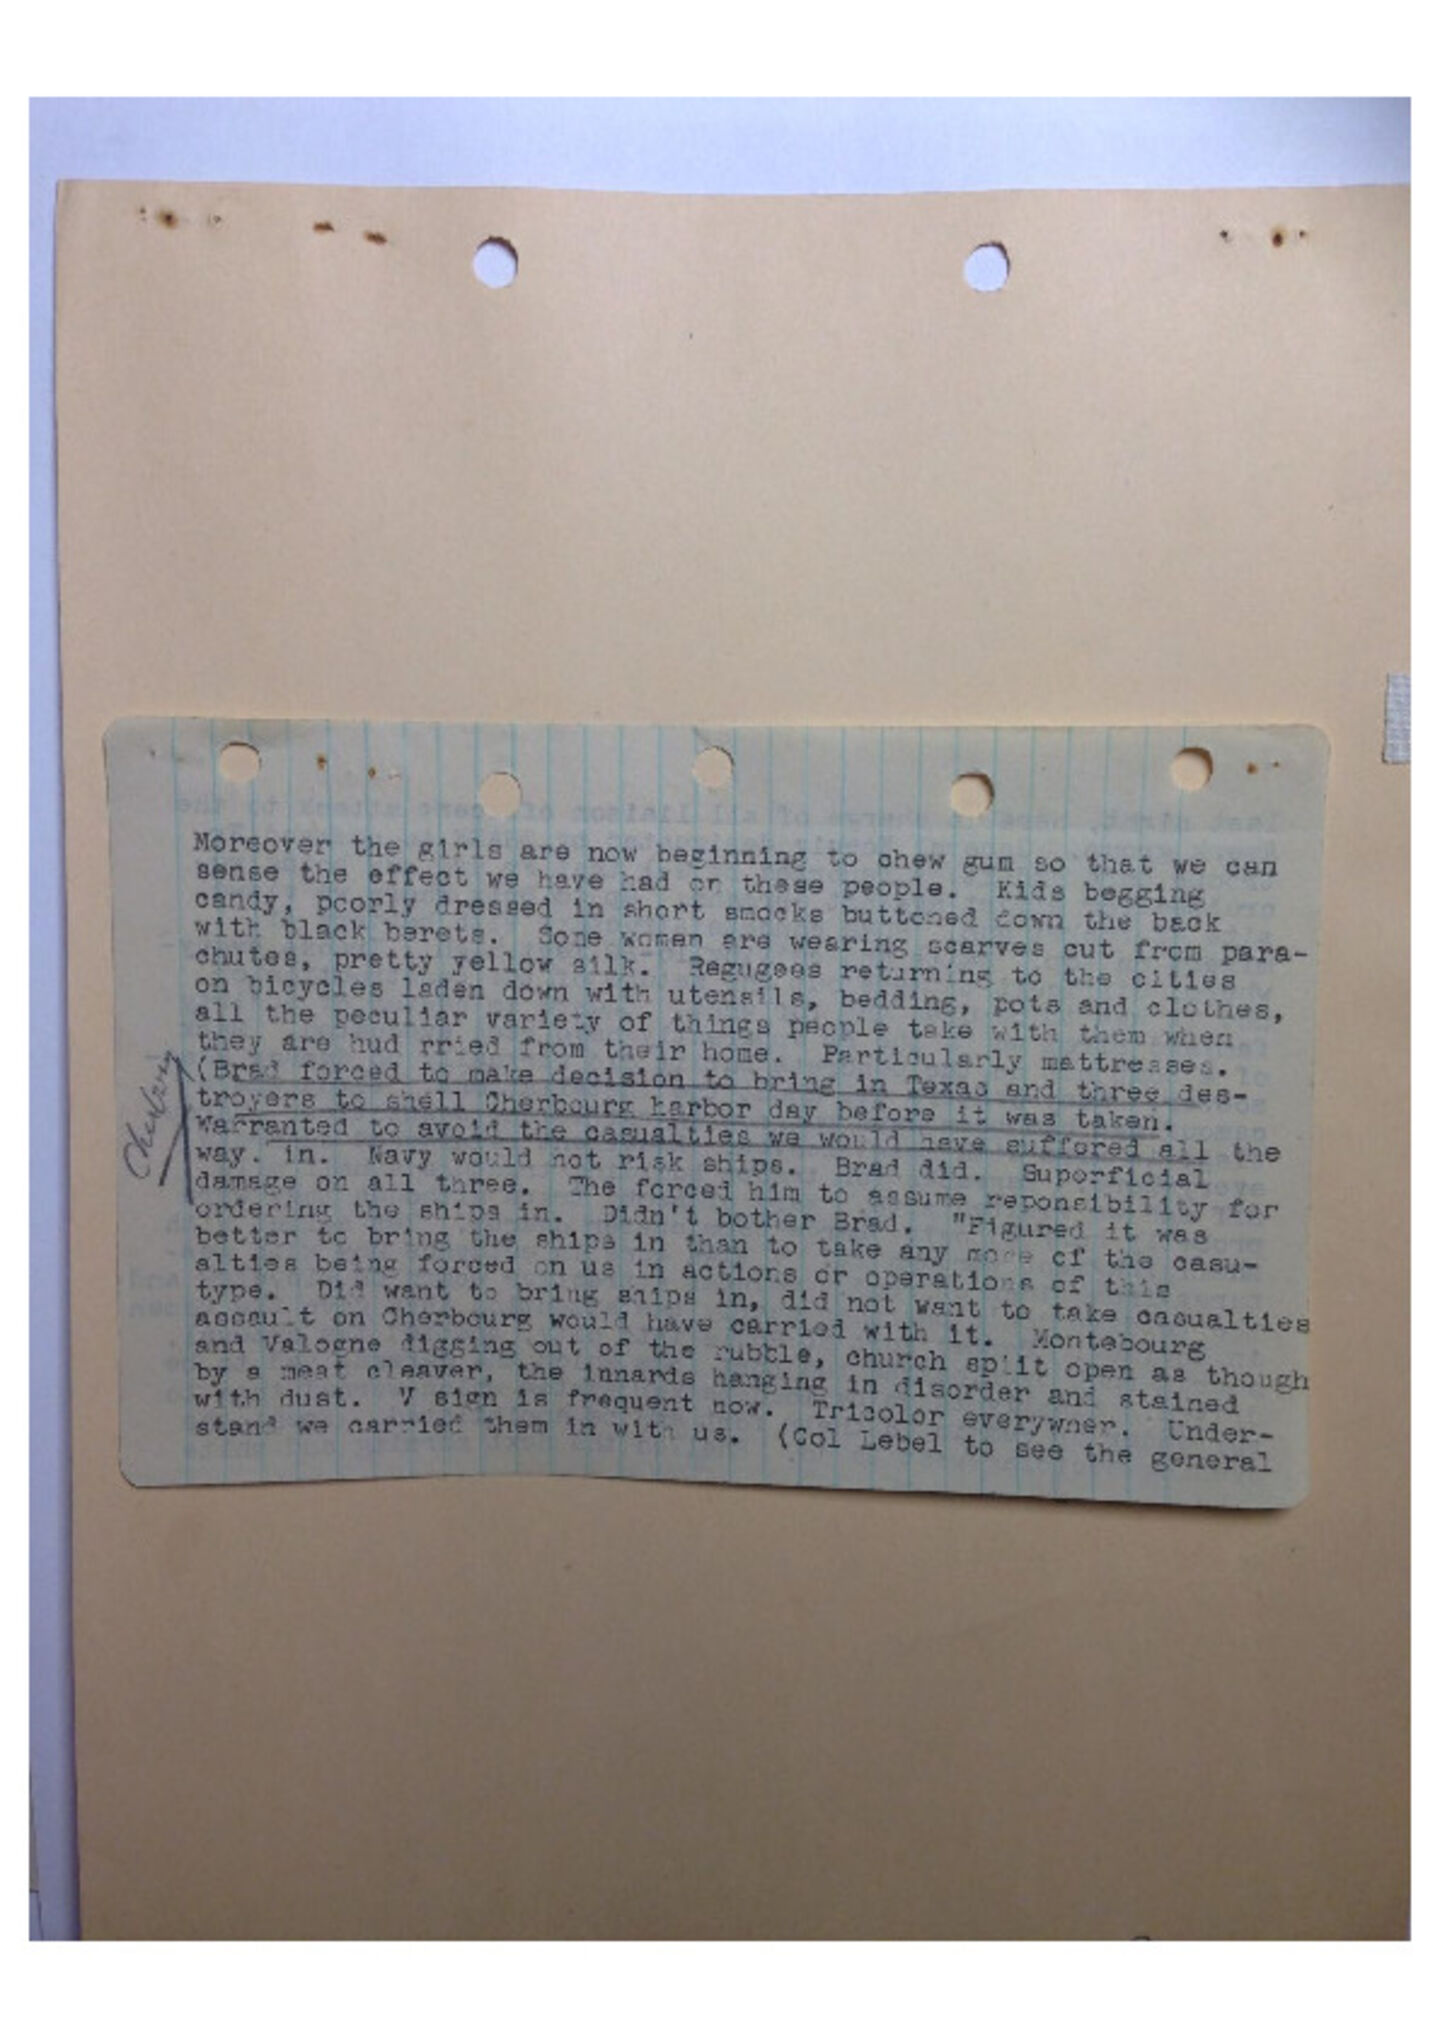 Moreover the girls are now beginning to chew gum so that we can
sense the effect we have had on these people. Kids begging
candy, poorly dressed in short smocks buttoned down the back
with black berets. Some women are wearing scarves cut from para-
chutes, pretty yellow silk. Regugees returning to the cities
on bicycles laden down with utensils, bedding, pots and clothes,
all the peculiar variety of things people take with them when
they are hud rried from their home. Particularly mattresses.
(Brad forced to make decision to bring in Texas and three des-
troyers to shell Cherbourg harbor day before it was taken.
Warranted to avoid the casualties we would have suffered all the
way. in. Navy would not risk ships. Brad did. Superficial
damage on all three. The forced him to assume reponsibility for
ordering the ships in. Didn't bother Brad. "Figured it was
better to bring the ships in than to take any more of the casu-
alties being forced on us in actions or operations of this
type. Did want to bring ships in, did not want to take casualties
assault on Cherbourg would have carried with it. Montebourg
and Valogne digging out of the rubble, church split open as though
by a meat cleaver, the innards hanging in disorder and stained
with dust. V sign is frequent now. Tricolor everywner. Under-
stand we carried them in with us. (Col Lebel to see the general